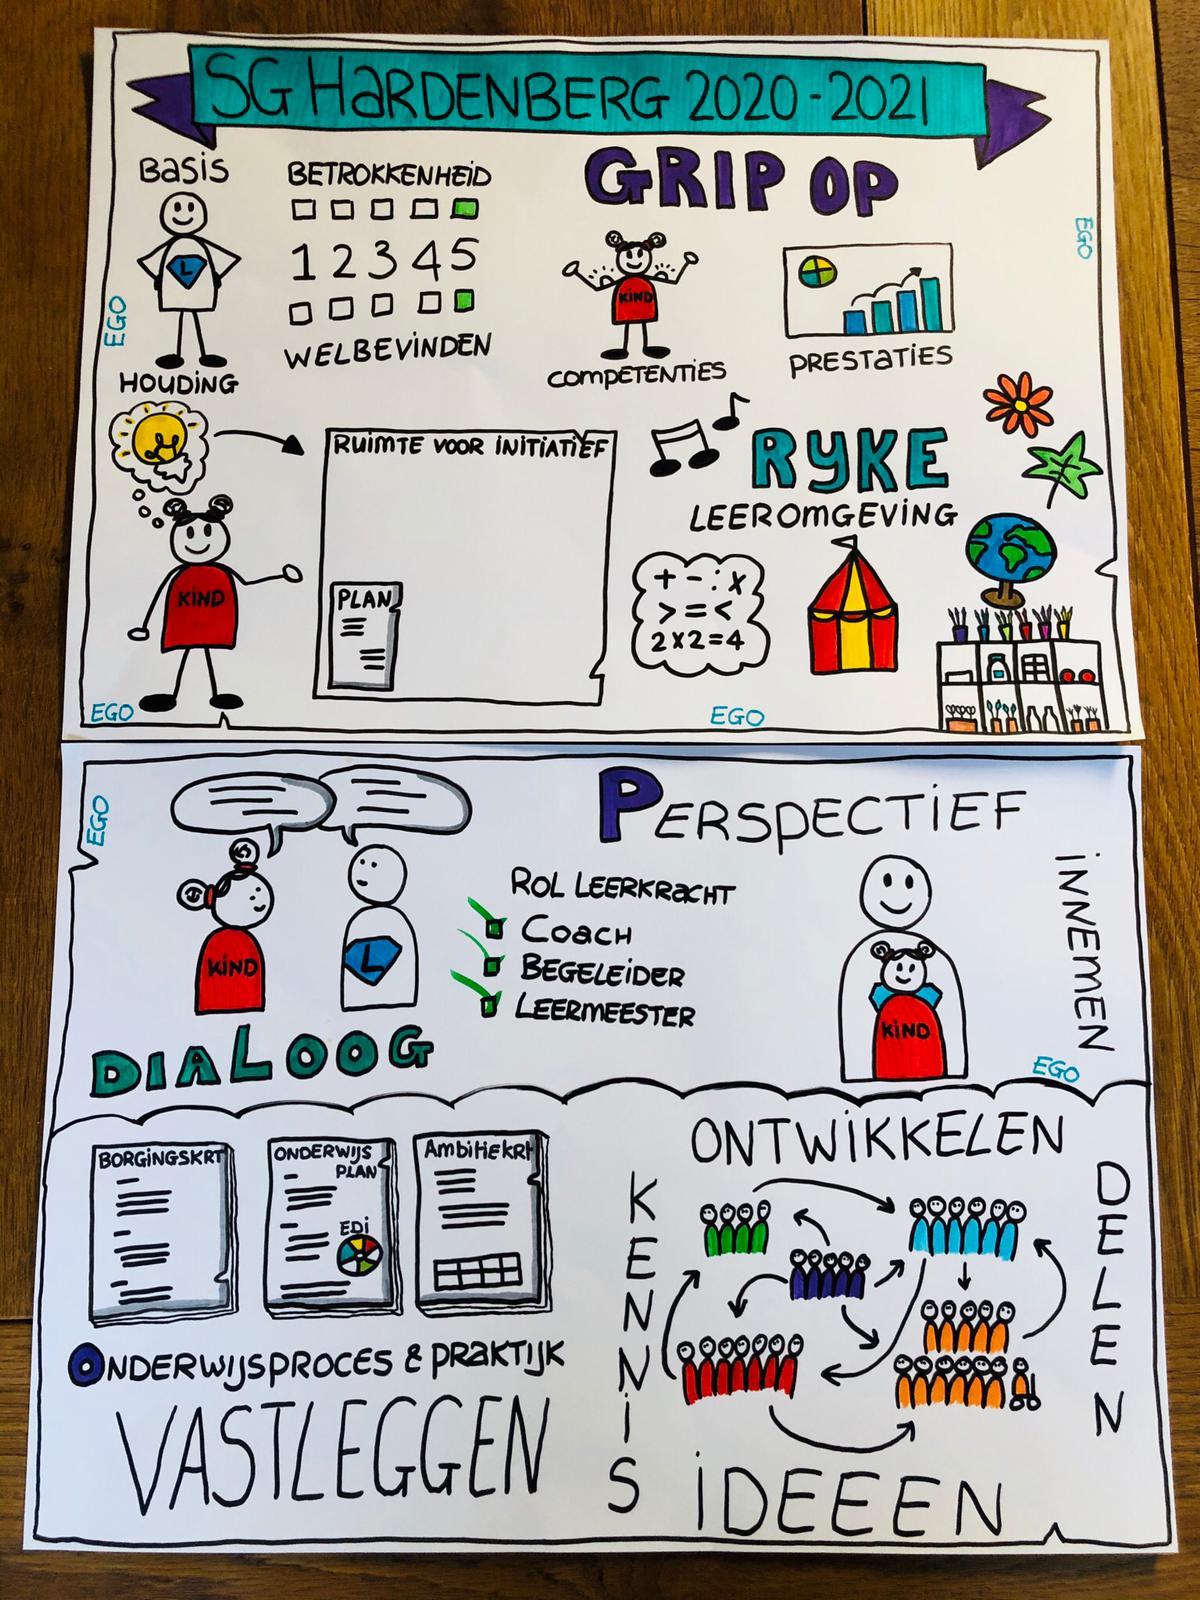 SG HARDENBERG 2020-2021
BASIS
L
HOUDING
BETROKKENHEID
1 2 3 4 5
WELBEVINDEN
GRIP OP
KIND
COMPETENTIES
PRESTATIES
EGO
EGO
KIND
RUIMTE VOOR INITIATIEF
PLAN
RYKE
LEEROMGEVING
+ - : x
> = <
2x2=4
EGO
EGO
EGO
KIND
L
DIALOOG
PERSPECTIEF
INNEMEN
ROL LEERKRACHT
COACH
BEGELEIDER
LEERMEESTER
KIND
EGO
BORGINGSKRT
ONDERWIJS
PLAN
EDI
AMBITIEKRT
ONDERWIJSPROCES & PRAKTIJK
VASTLEGGEN
ONTWIKKELEN
KENNIS
DELEN
IDEEEN